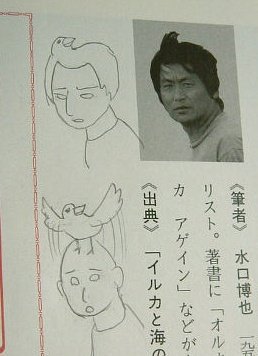 《筆者》 水口博也 一九五
リスト。著書に「オルカ
カ アゲイン」などが
《出典》「イルカと海の